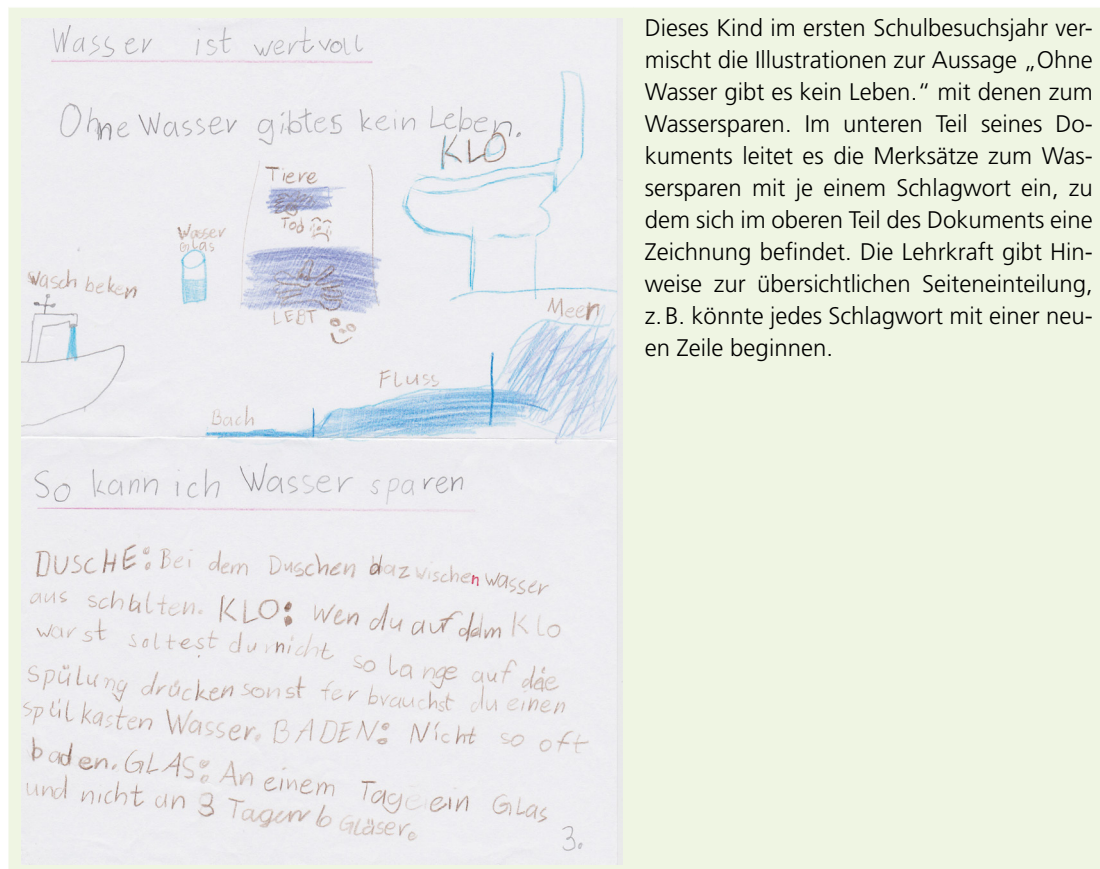 Wasser ist wertvoll
Ohne Wasser gibt es kein Leben.
KLO
Tiere
Tod
Wasser
Glas
Wasch beken
LEBT
Meer
Fluss
Bach
So kann ich Wasser sparen
DUSCHE: Bei dem Duschen dazwischen wasser
aus schalten. KLO: Wen du auf dem Klo
warst soltest du nicht so lange auf die
spülung drücken sonst fer brauchst du einen
spülkasten Wasser. BADEN: Nicht so oft
baden. GLAS: An einem Tag ein GLas
und nicht an 3 Tagen 6 Gläser.
3.
Dieses Kind im ersten Schulbesuchsjahr ver-
mischt die Illustrationen zur Aussage „Ohne
Wasser gibt es kein Leben.“ mit denen zum
Wassersparen. Im unteren Teil seines Do-
kuments leitet es die Merksätze zum Was-
sersparen mit je einem Schlagwort ein, zu
dem sich im oberen Teil des Dokuments eine
Zeichnung befindet. Die Lehrkraft gibt Hin-
weise zur übersichtlichen Seiteneinteilung,
z. B. könnte jedes Schlagwort mit einer neu-
en Zeile beginnen.